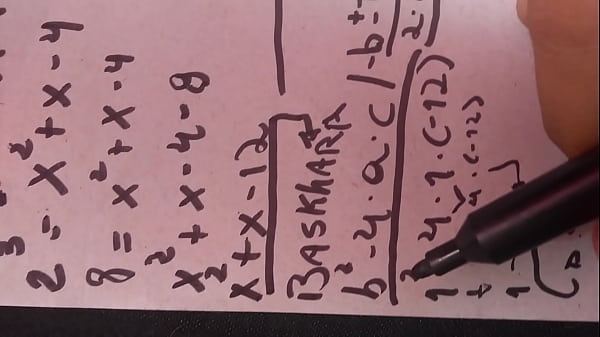 2³ = x² + x - 4
8 = x² + x - 4
x² + x - 4 - 8
x² + x - 12
BASKHARA
b² - 4 · a · c / -b ±
2 ·
1² 4 · 1 · (-12)
4 · (-12)
1